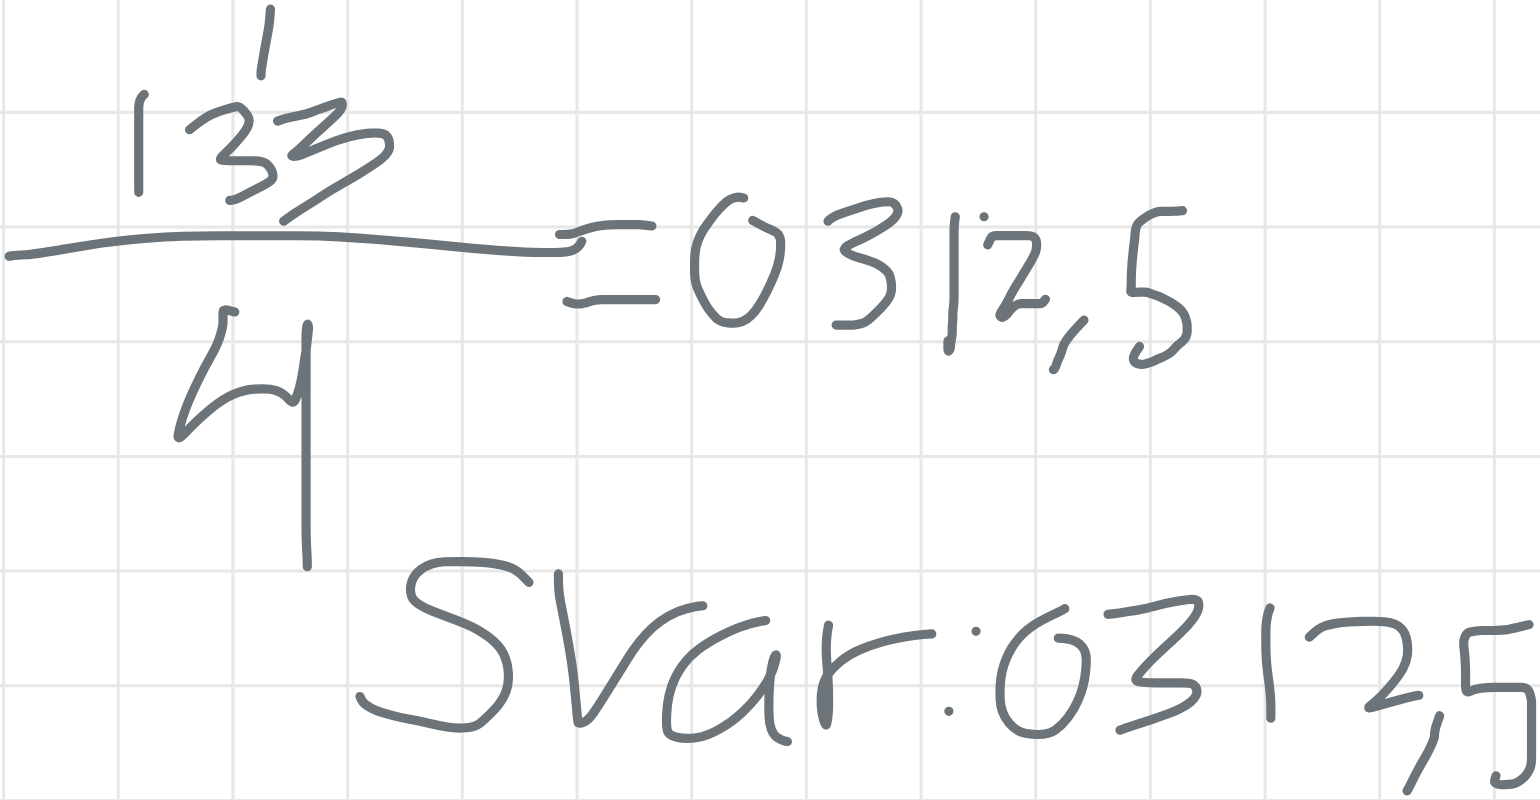 1
133
4
=0312,5
Svar:0312,5